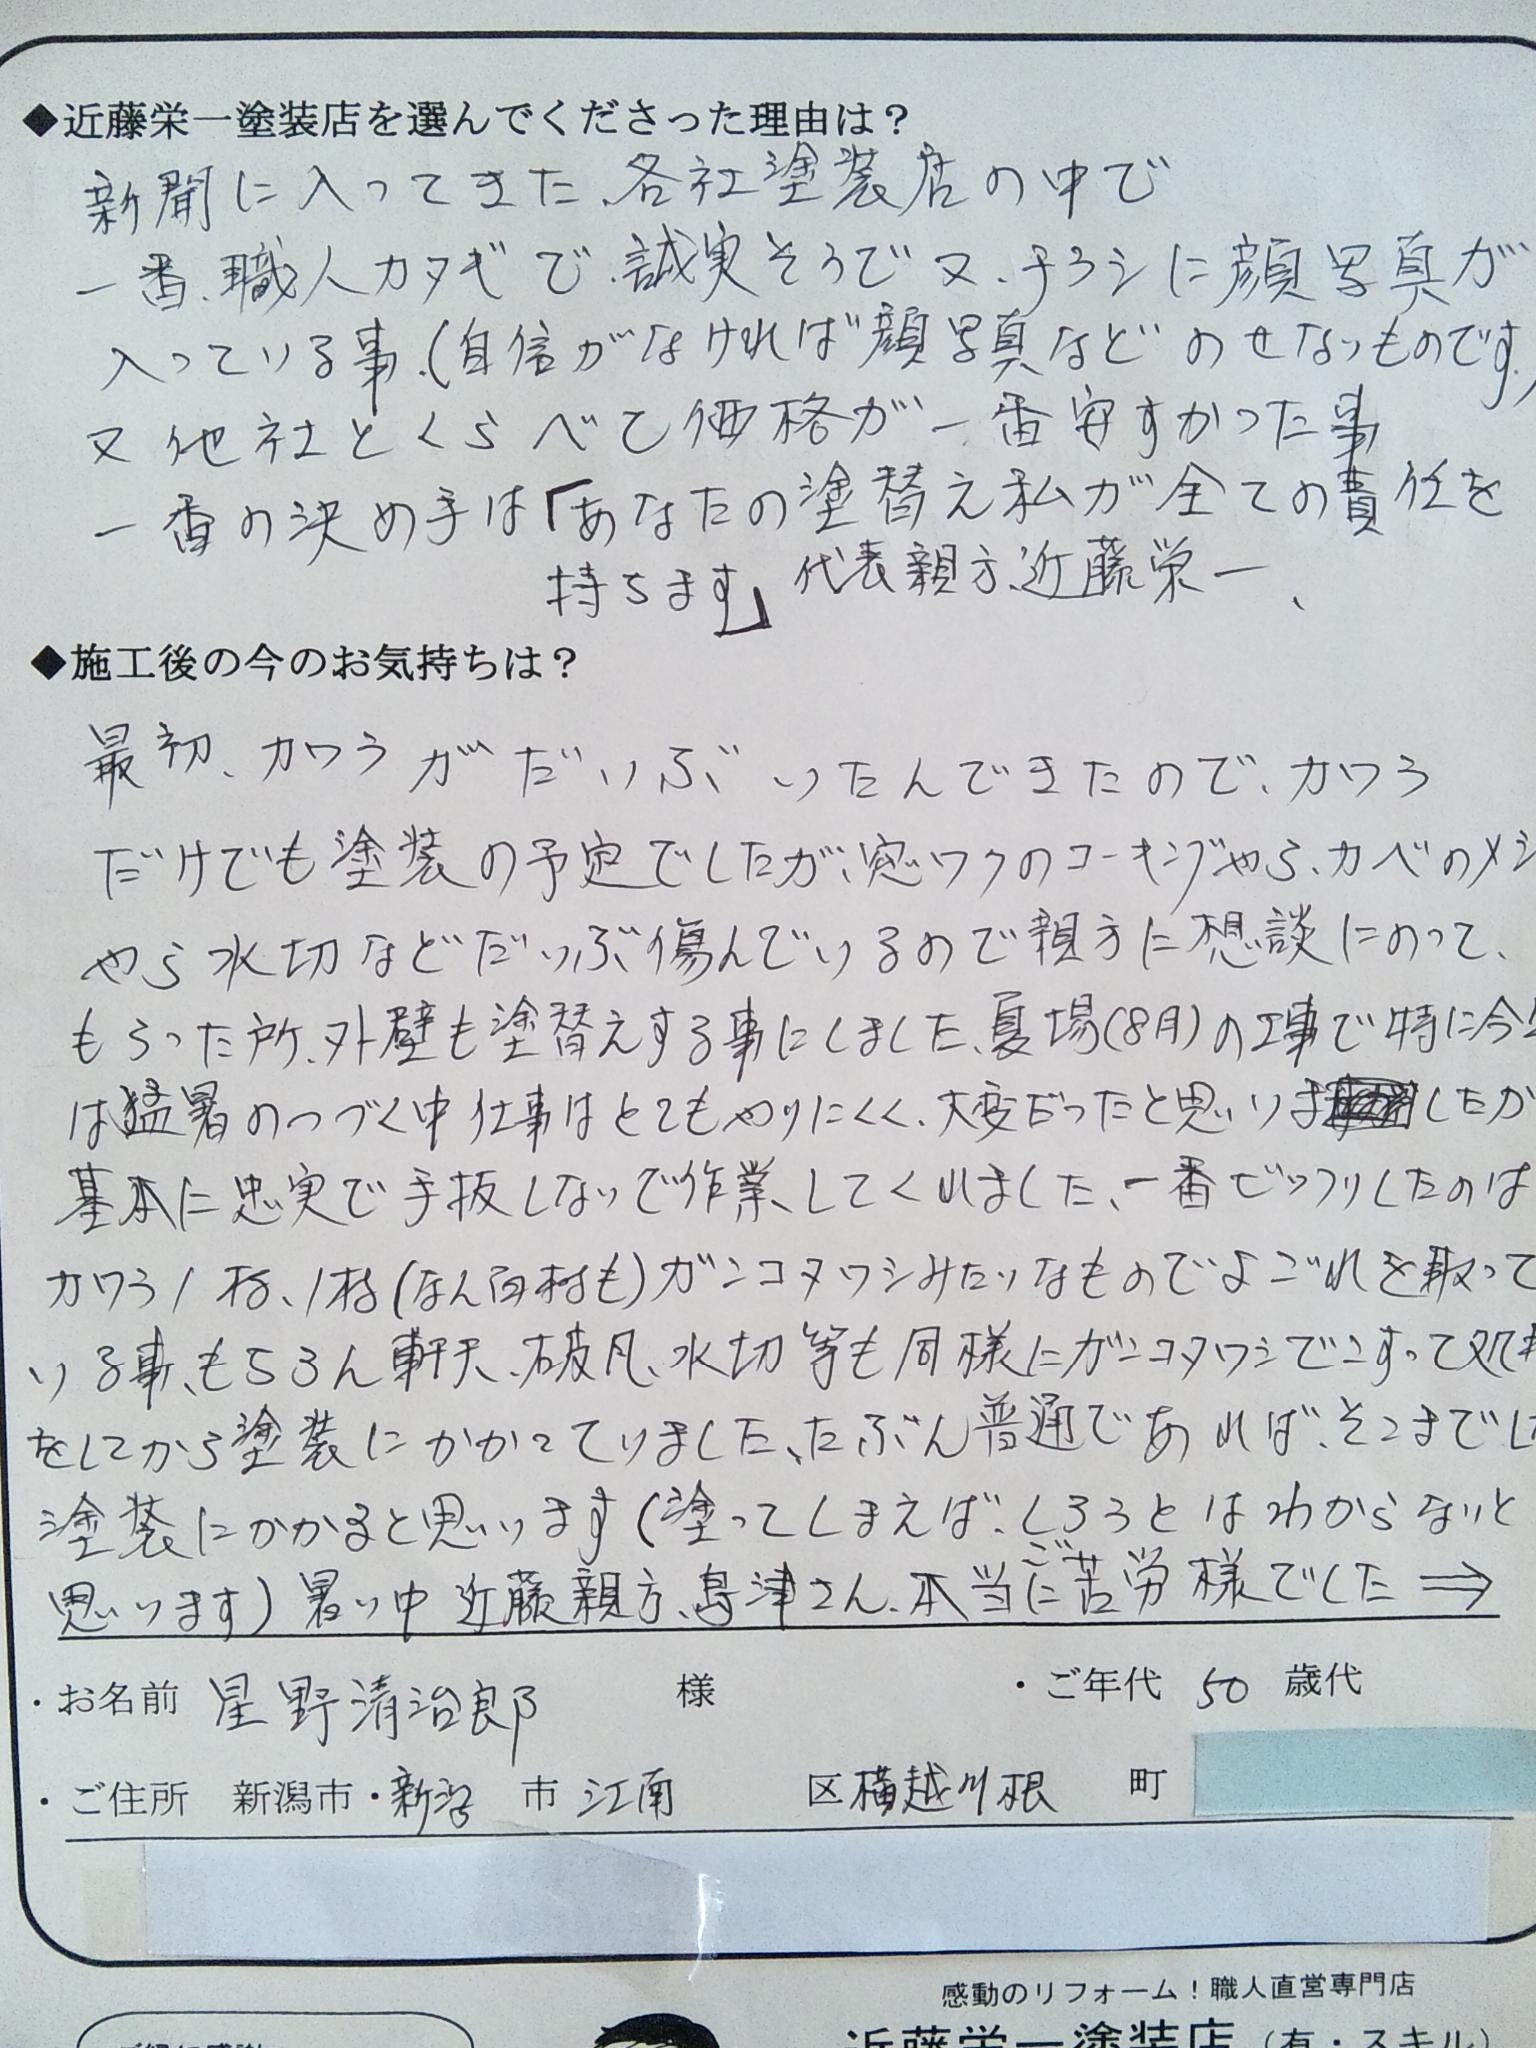 ◆近藤栄一塗装店を選んでくださった理由は?
新聞に入ってきた、各社塗装店の中で
一番、職人カタギで、誠実そうで又、チラシに顔写真が
入っている事、(自信がなければ顔写真などのせないものです。)
又他社とくらべて価格が一番安すかった事
一番の決め手は「あなたの塗替え私が全ての責任を
持ちます」代表親方、近藤栄一、
◆施工後の今のお気持ちは?
最初、カワラがだいぶいたんできたので、カワラ
だけでも塗装の予定でしたが、窓ワクのコーキングやら、カベのメジ
やら水切などだいぶ傷んでいるので親方に想談にのって、
もらった所、外壁も塗替えする事にしました、夏場(8月)の工事で特に今年
は猛暑のつづく中仕事はとてもやりにくく、大変だったと思いましたが
基本に忠実で手抜しないで作業してくれました、一番ビックリしたのは
カワラ1枚、1枚(なん百枚も)ガンコタワシみたいなものでよごれを取って
いる事、もちろん軒天、破凡、水切等も同様にガンコタワシでこすって処
をしてから塗装にかかっていました、たぶん普通であれば、そこまでし
塗装にかかると思います(塗ってしまえば、しろうとはわからないと
思います)暑い中近藤親方、島津さん、本当にご苦労様でした⇒
・お名前 星野清治郎 様 ・ご年代 50 歳代
・ご住所 新潟市・新潟 市 江南 区 横越川根 町
感動のリフォーム!職人直営専門店
近藤栄一塗装店(有・スキル)